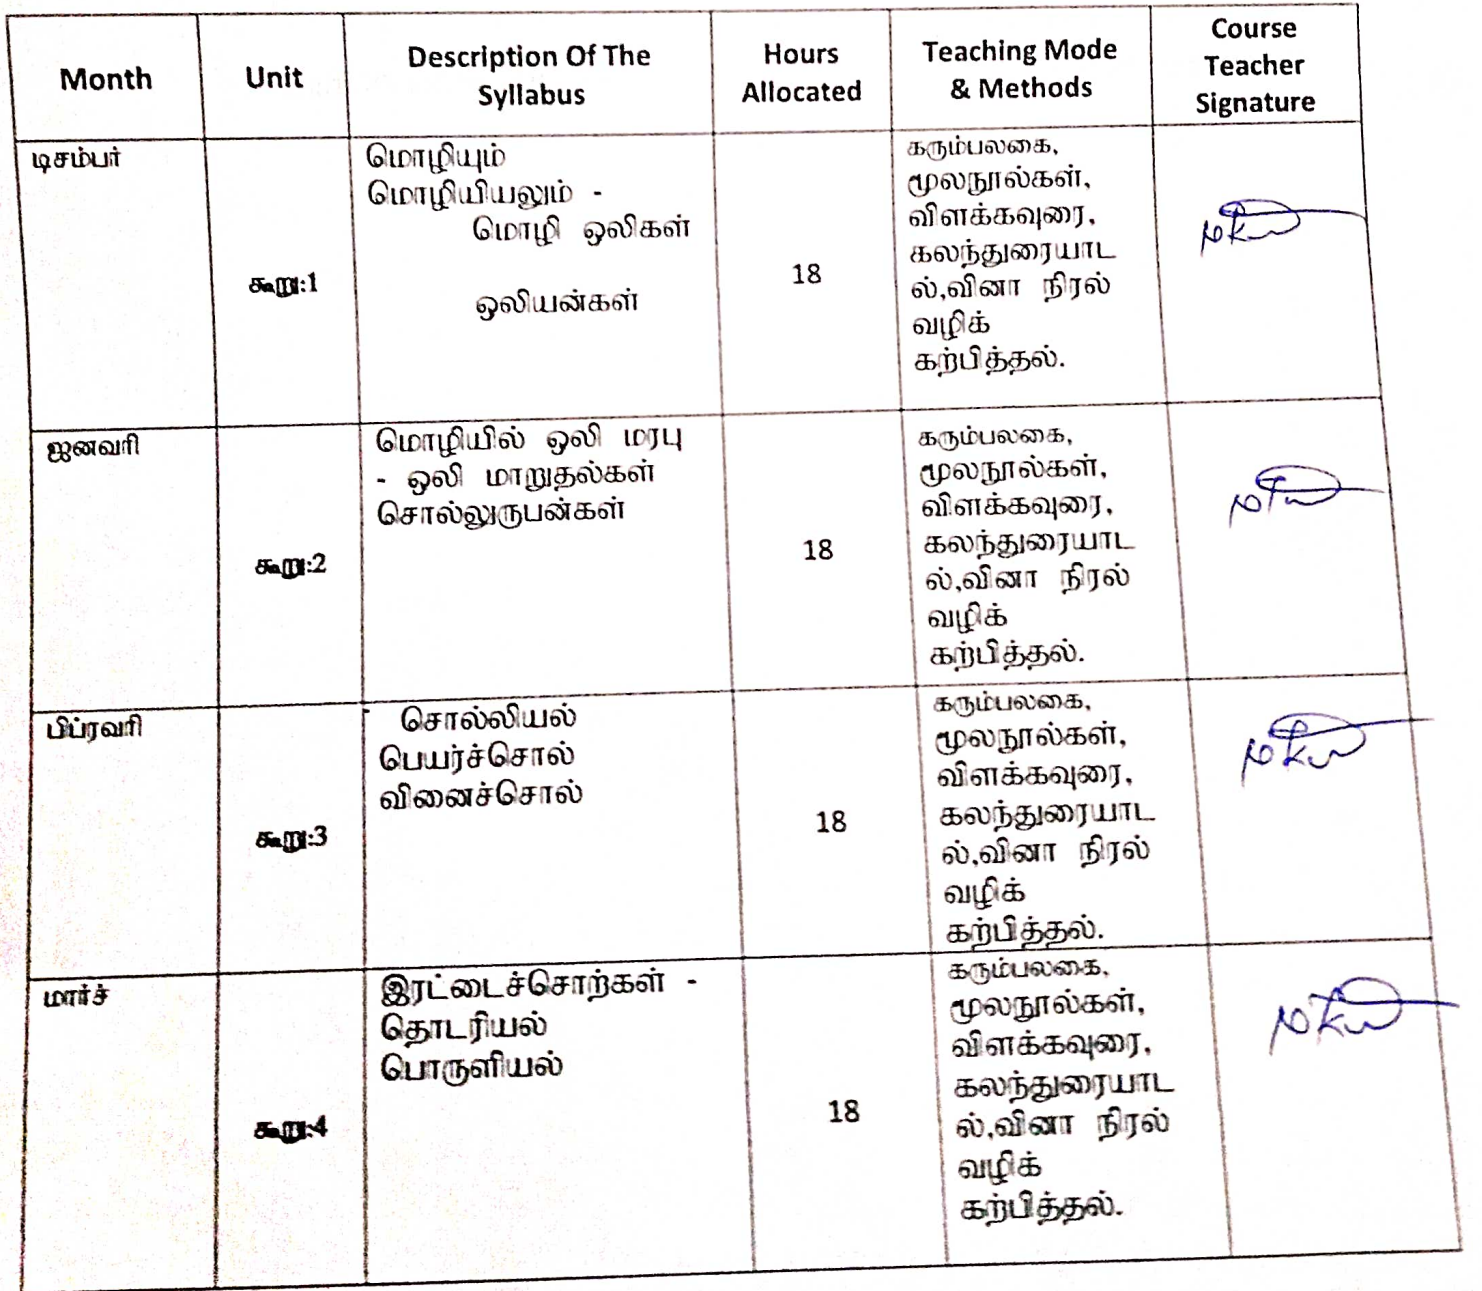 Month
Unit
Description Of The
Syllabus
Hours
Allocated
Teaching Mode
& Methods
Course
Teacher
Signature
டிசம்பர்
கூறு:1
மொழியும்
மொழியியலும் -
மொழி ஒலிகள்
ஒலியன்கள்
18
கரும்பலகை,
மூலநூல்கள்,
விளக்கவுரை,
கலந்துரையாட
ல்,வினா நிரல்
வழிக்
கற்பித்தல்.
ஜனவரி
கூறு:2
மொழியில் ஒலி மரபு
- ஒலி மாறுதல்கள்
சொல்லுருபன்கள்
18
கரும்பலகை,
மூலநூல்கள்,
விளக்கவுரை,
கலந்துரையாட
ல்,வினா நிரல்
வழிக்
கற்பித்தல்.
பிப்ரவரி
கூறு:3
சொல்லியல்
பெயர்ச்சொல்
வினைச்சொல்
18
கரும்பலகை,
மூலநூல்கள்,
விளக்கவுரை,
கலந்துரையாட
ல்,வினா நிரல்
வழிக்
கற்பித்தல்.
மார்ச்
கூறு:4
இரட்டைச்சொற்கள் -
தொடரியல்
பொருளியல்
18
கரும்பலகை,
மூலநூல்கள்,
விளக்கவுரை,
கலந்துரையாட
ல்,வினா நிரல்
வழிக்
கற்பித்தல்.